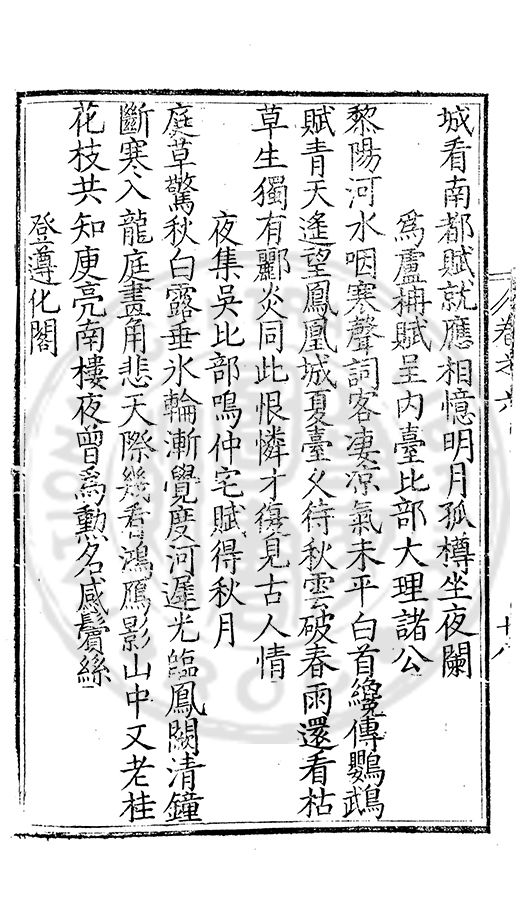 城看南都賦就應相憶明月孤樽坐夜闌
為盧柟賦呈内臺比部大理諸公
黎陽河水咽寒聲詞客凄凉氣未平白首纔傳鸚鵡
賦青天遙望鳳凰城夏臺乆待秋雲破春雨還看枯
草生獨有酈炎同此恨憐才復見古人情
夜集吳比部鳴仲宅賦得秋月
庭草驚秋白露垂氷輪漸覺度河遲光臨鳳闕清鐘
斷寒入龍庭畫角悲天際幾看鴻鴈影山中又老桂
花枝共知庾亮南樓夜曾為勲名感鬢絲
登遵化閣